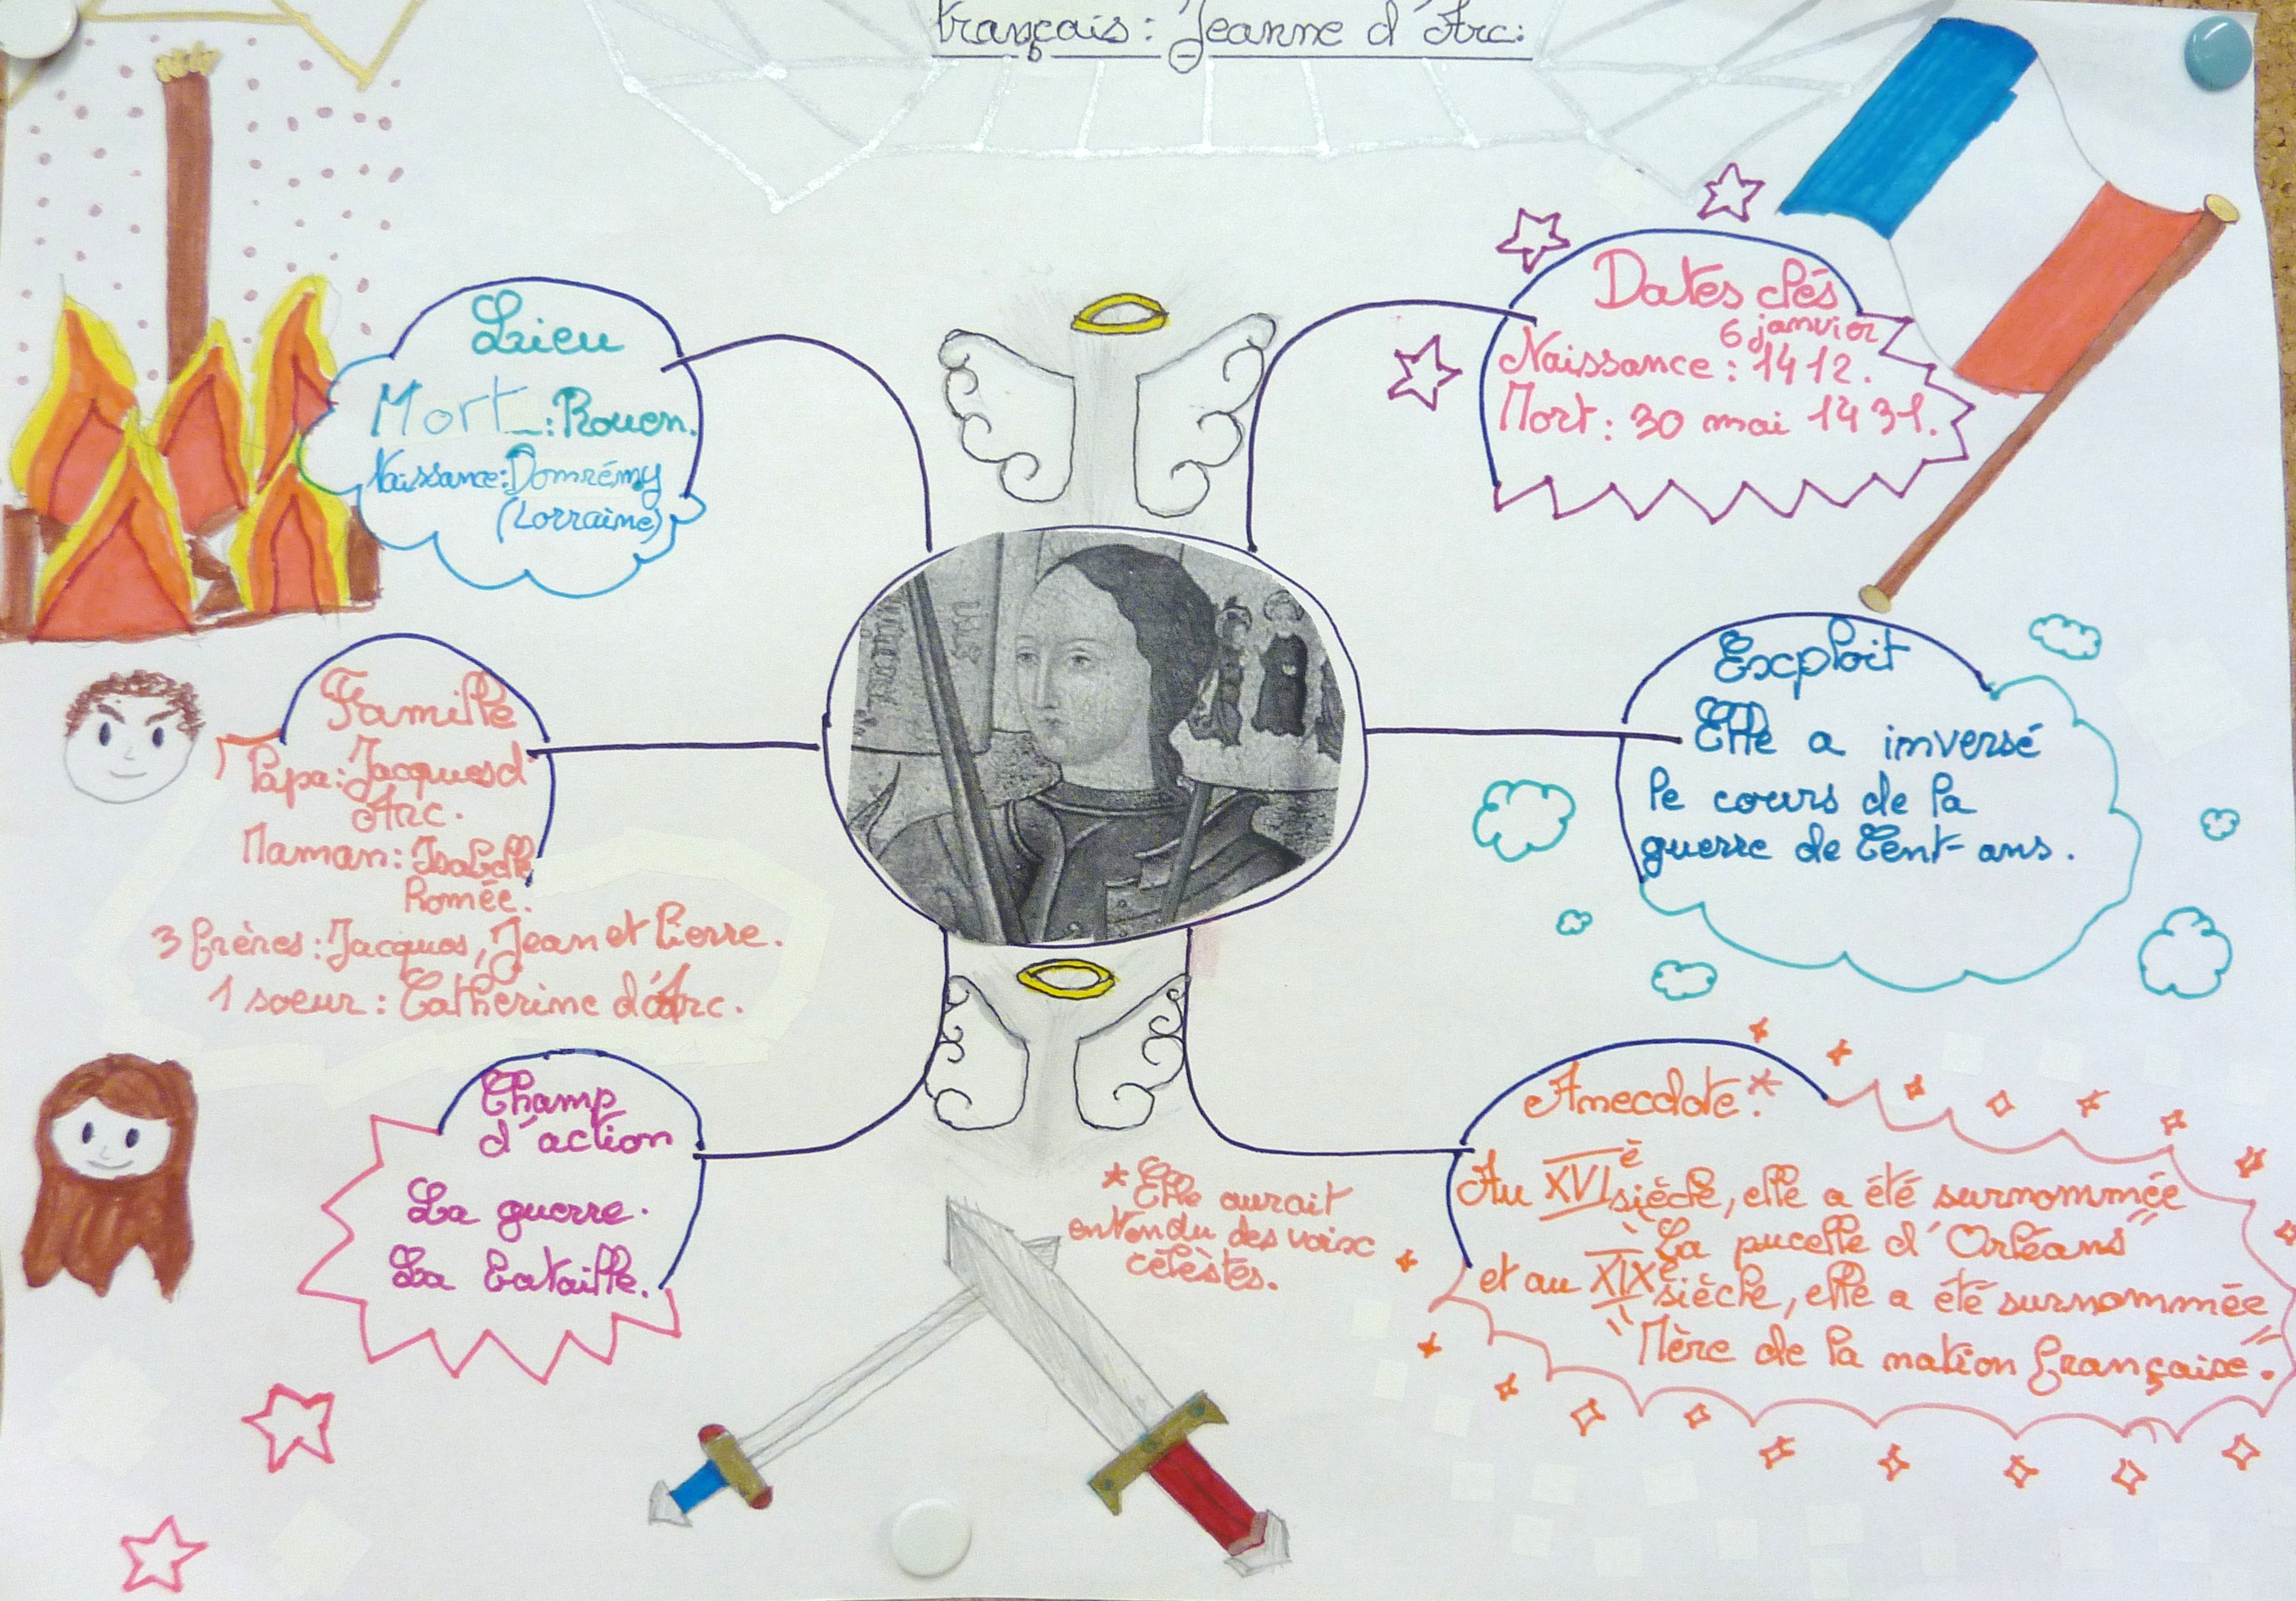 français : Jeanne d'Arc :
Lieu
Mort : Rouen.
Naissance : Domrémy
(Lorraine)
Dates clés
6 janvier
Naissance : 1412.
Mort : 30 mai 1431.
Famille
Papa : Jacques d'
Arc.
Maman : Isabelle
Romée.
3 frères : Jacques, Jean et Pierre.
1 soeur : Catherine d'Arc.
Exploit
Elle a inversé
le cours de la
guerre de Cent-ans.
Champ
d'action
La guerre.
La bataille.
Anecdote : *
Au XVIè siècle, elle a été surnommée
"La pucelle d'Orléans"
et au XIXè siècle, elle a été surnommée
"Mère de la nation française".
* Elle aurait
entendu des voix
célèstes.